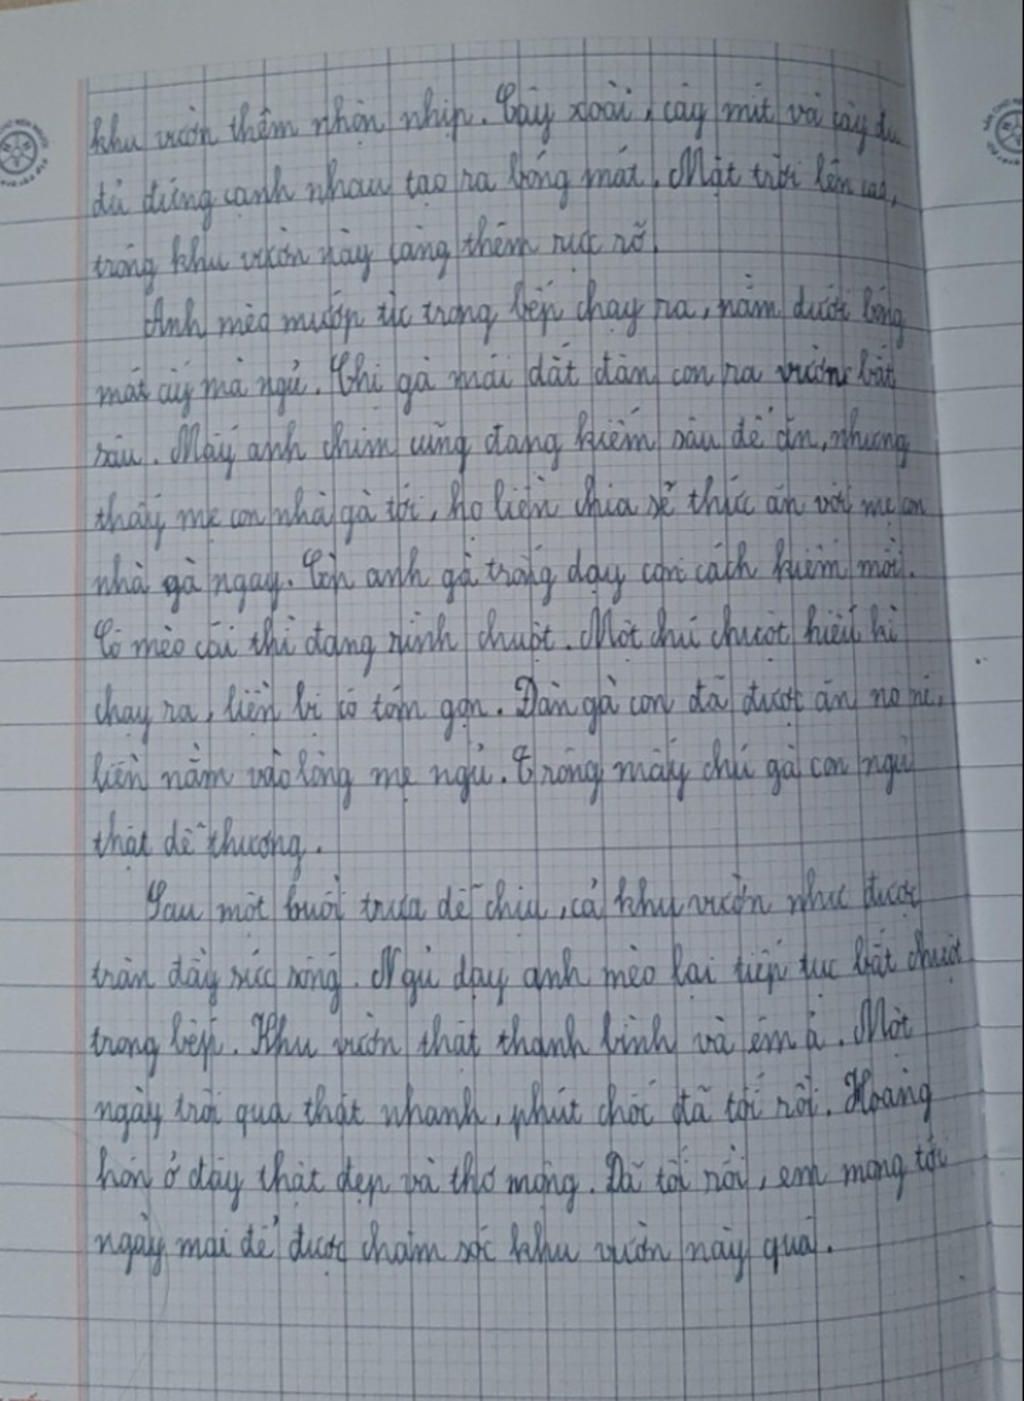 khu vườn thêm nhộn nhịp. Cây xoài, cây mít và cây đu
đủ đứng cạnh nhau tạo ra bóng mát. Mặt trời lên cao,
trông khu vườn này càng thêm rực rỡ.
Anh mèo mướp từ trong bếp chạy ra, nằm dưới bóng
mát ấy mà ngủ. Chị gà mái dắt đàn con ra vườn bắt
sâu. Mấy anh chim cũng đang kiếm sâu để ăn, nhưng
thấy mẹ con nhà gà tới, họ liền chia sẻ thức ăn với mẹ con
nhà gà ngay. Còn anh gà trống dạy con cách kiếm mồi.
Cô mèo cái thì đang rình chuột. Một chú chuột hiếu kì
chạy ra, liền bị cô tóm gọn. Đàn gà con đã được ăn no nê,
liền nằm vào lòng mẹ ngủ. Trông mấy chú gà con ngủ
thật dễ thương.
Sau một buổi trưa dễ chịu, cả khu vườn như được
tràn đầy sức sống. Ngủ dậy anh mèo lại tiếp tục bắt chuột
trong bếp. Khu vườn thật thanh bình và êm ả. Một
ngày trôi qua thật nhanh, phút chốc đã tối rồi. Hoàng
hôn ở đây thật đẹp và thơ mộng. Đã tối rồi, em mong tới
ngày mai để được chăm sóc khu vườn này quá.